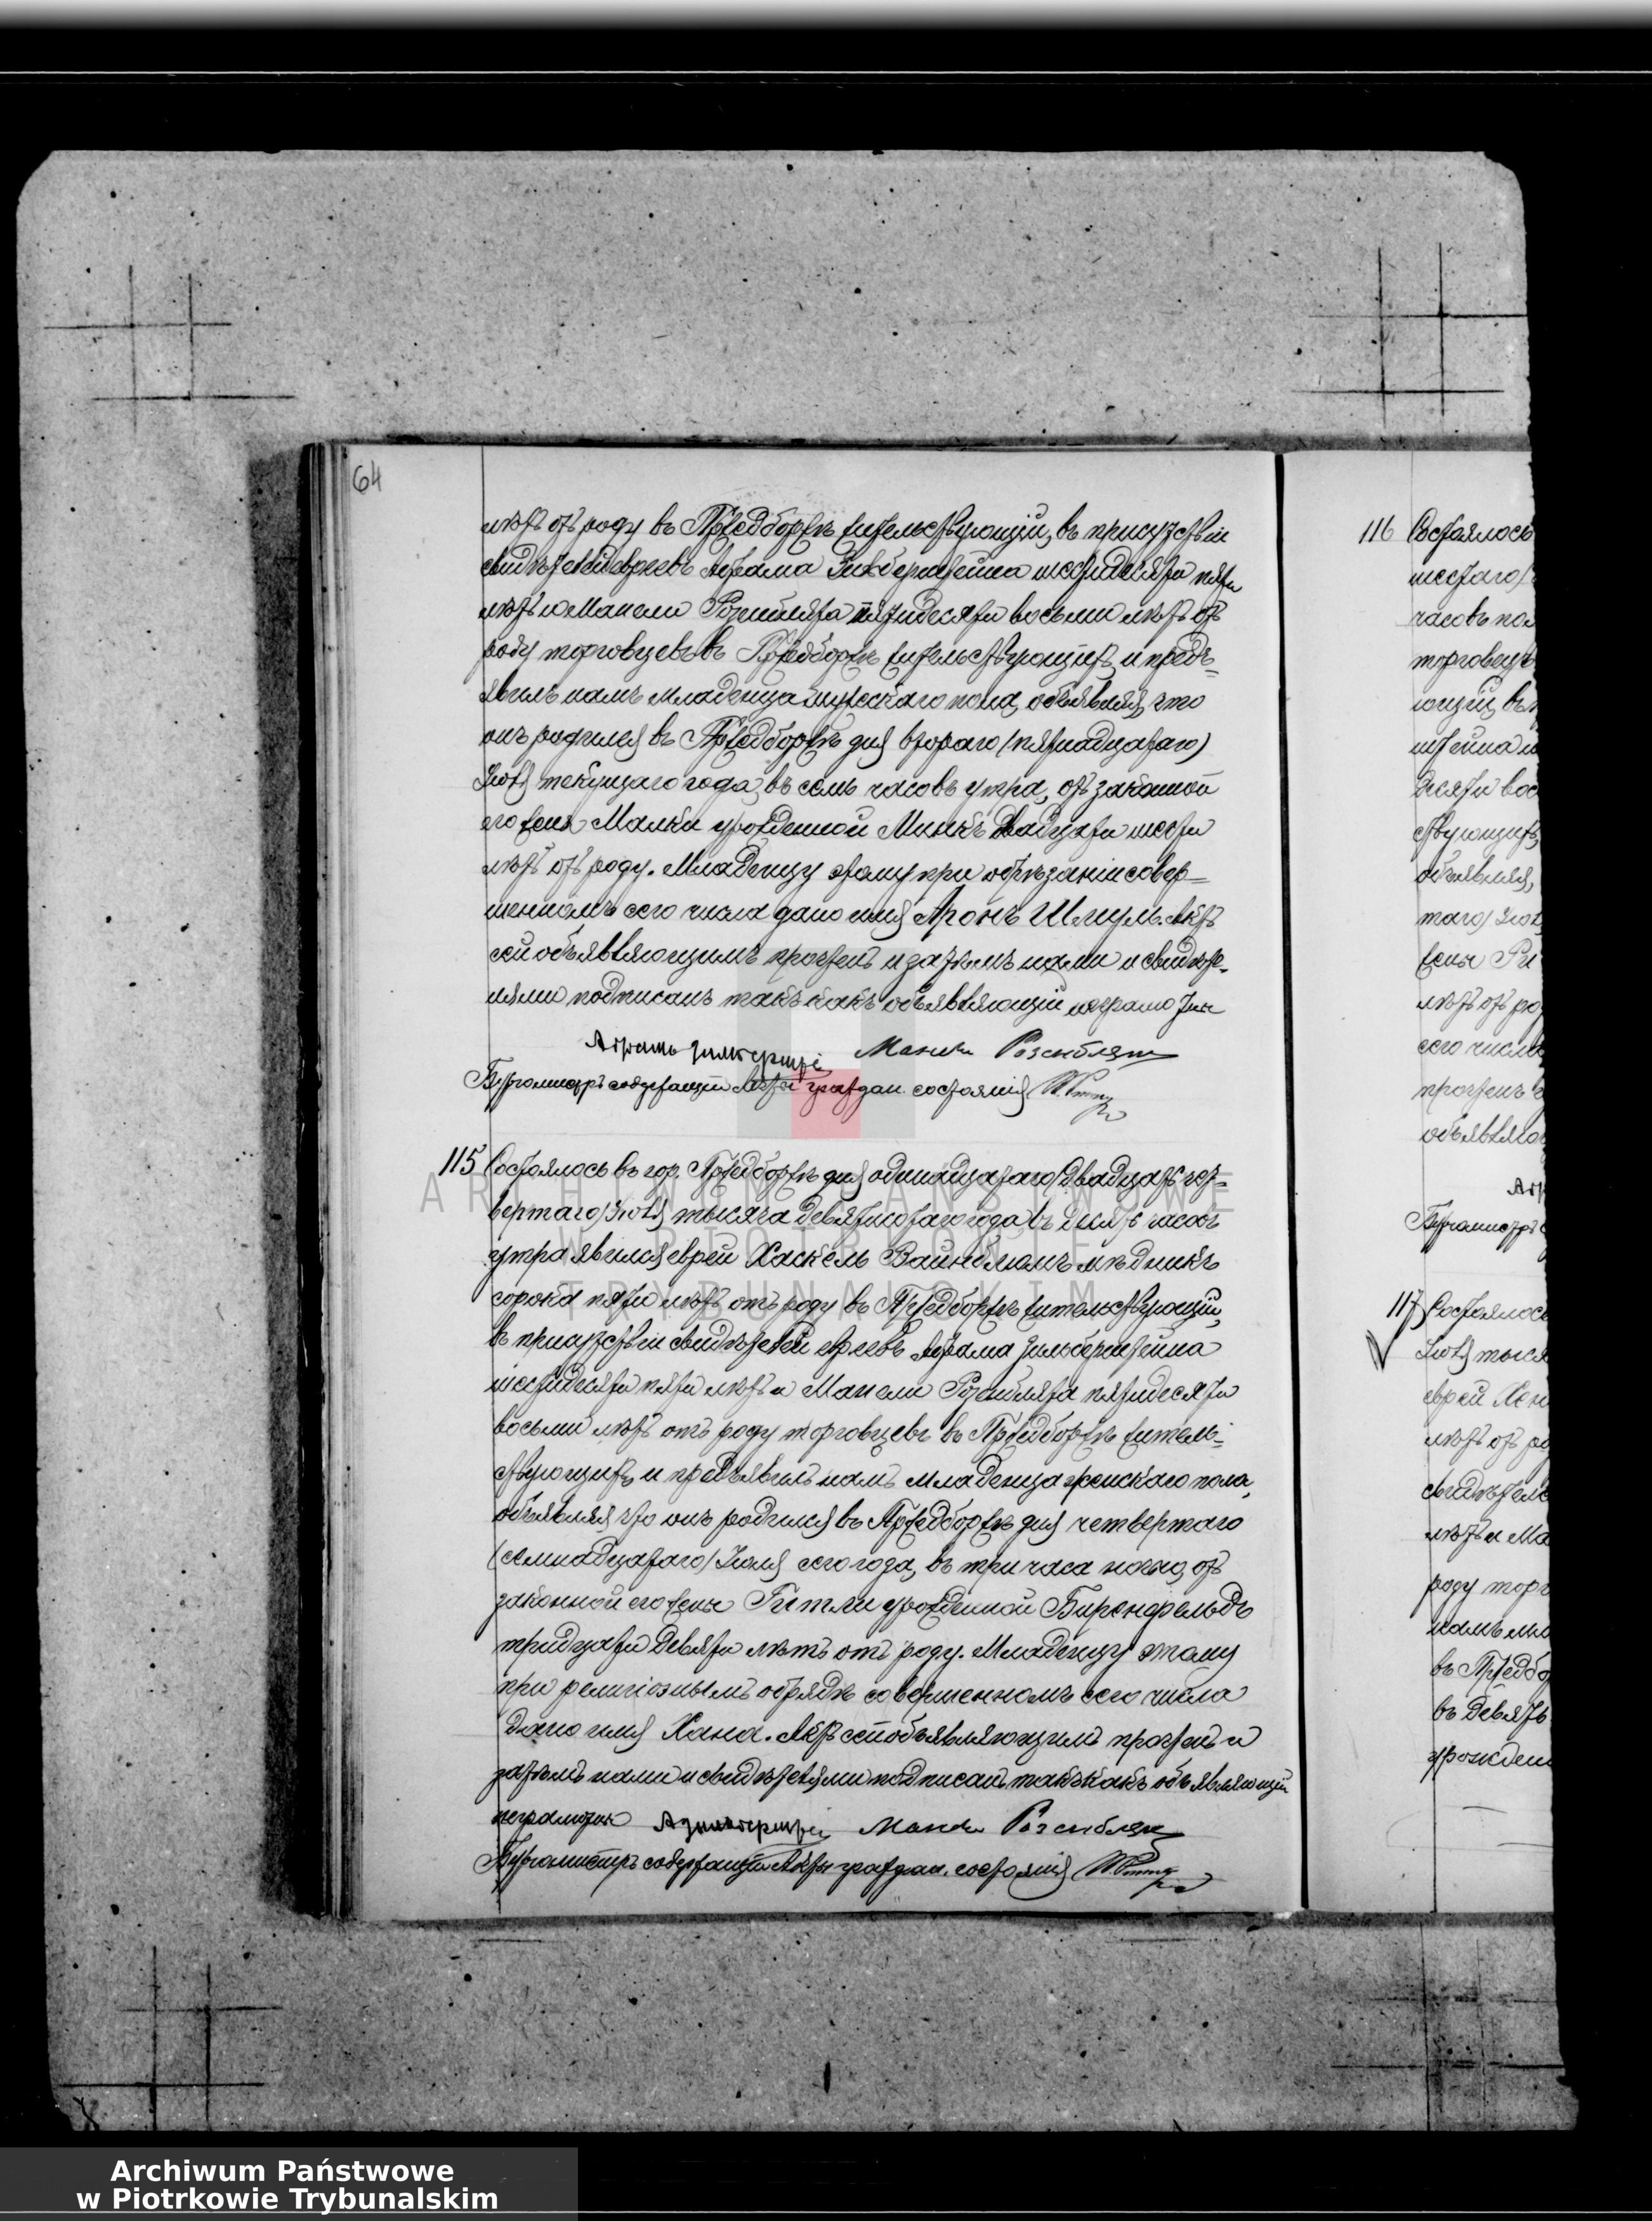 64
лѣтъ отъ роду въ Пржедборжѣ жительствующій, въ присутствіи
свидѣтелей евреевъ Абрама Зильберштейна шестидесяти пяти
лѣтъ и Манели Розенблята пятидесяти восьми лѣтъ отъ
роду торговцевъ въ Пржедборжѣ жительствующихъ, и предъ-
явилъ намъ младенца мужескаго пола, объявляя, что
онъ родился въ Пржедборжѣ дня втораго (пятнадцатаго)
Іюля текущаго года, въ семь часовъ утра, отъ законной
его жены Малки урожденной Минкъ двадцати шести
лѣтъ отъ роду. Младенцу этому при обрѣзаніи совер-
шенномъ сего числа дано имя Аронъ Шмуль. Актъ
сей объявляющимъ прочтенъ и затѣмъ нами и свидѣте-
лями подписанъ такъ какъ объявляющій неграмотны
Манели Розенблят
Бургомистръ содержащій Акты граждан. состоянія
115 Состоялось въ гор. Пржедборжѣ дня одинадцатаго/Двадцать чет-
вертаго/Іюля тысяча девятисотаго года въ десять часовъ
утра явился еврей Хаскель Вайнблюмъ мѣдникъ
сорока пяти лѣтъ отъ роду въ Пржедборжѣ жительствующій,
въ присутствіи свидѣтелей евреевъ Абрама Зильберштейна
шестидесяти пяти лѣтъ и Манели Розенблята пятидесяти
восьми лѣтъ отъ роду торговцевъ въ Пржедборжѣ житель-
ствующихъ, и предъявилъ намъ младенца женскаго пола,
объявляя что онъ родился въ Пржедборжѣ дня четвертаго
(семнадцатаго) Іюля сего года, въ три часа ночью, отъ
законной его жены Гитли урожденной Биренфельдъ
тридцати девяти лѣтъ отъ роду. Младенцу этому
при религіозномъ обрядѣ совершенномъ сего числа
дано имя Хана. Актъ сей объявляющимъ прочтенъ и
затѣмъ нами и свидѣтелями подписанъ такъ какъ объявляющій
неграмотны Манели Розенблят
Бургомистръ содержащій Акты граждан. состоянія
116 Состоялось
шестаго/
часовъ пол
торговецъ
ющій, въ п
штейна ш
десяти вос
ствующихъ,
объявляя,
таго) Іюл
жены Ри
лѣтъ отъ ро
сего числа
прочтенъ
объявляю
Бургомистръ
117 Состоялось
Іюля тыся
еврей
лѣтъ отъ ро
свидѣтеле
лѣтъ и Ма
роду торг
намъ мла
въ Пржедбо
въ девять
урожден
ARCHIWUM PAŃSTWOWE
W PIOTRKOWIE
TRYBUNALSKIM
Archiwum Państwowe
w Piotrkowie Trybunalskim